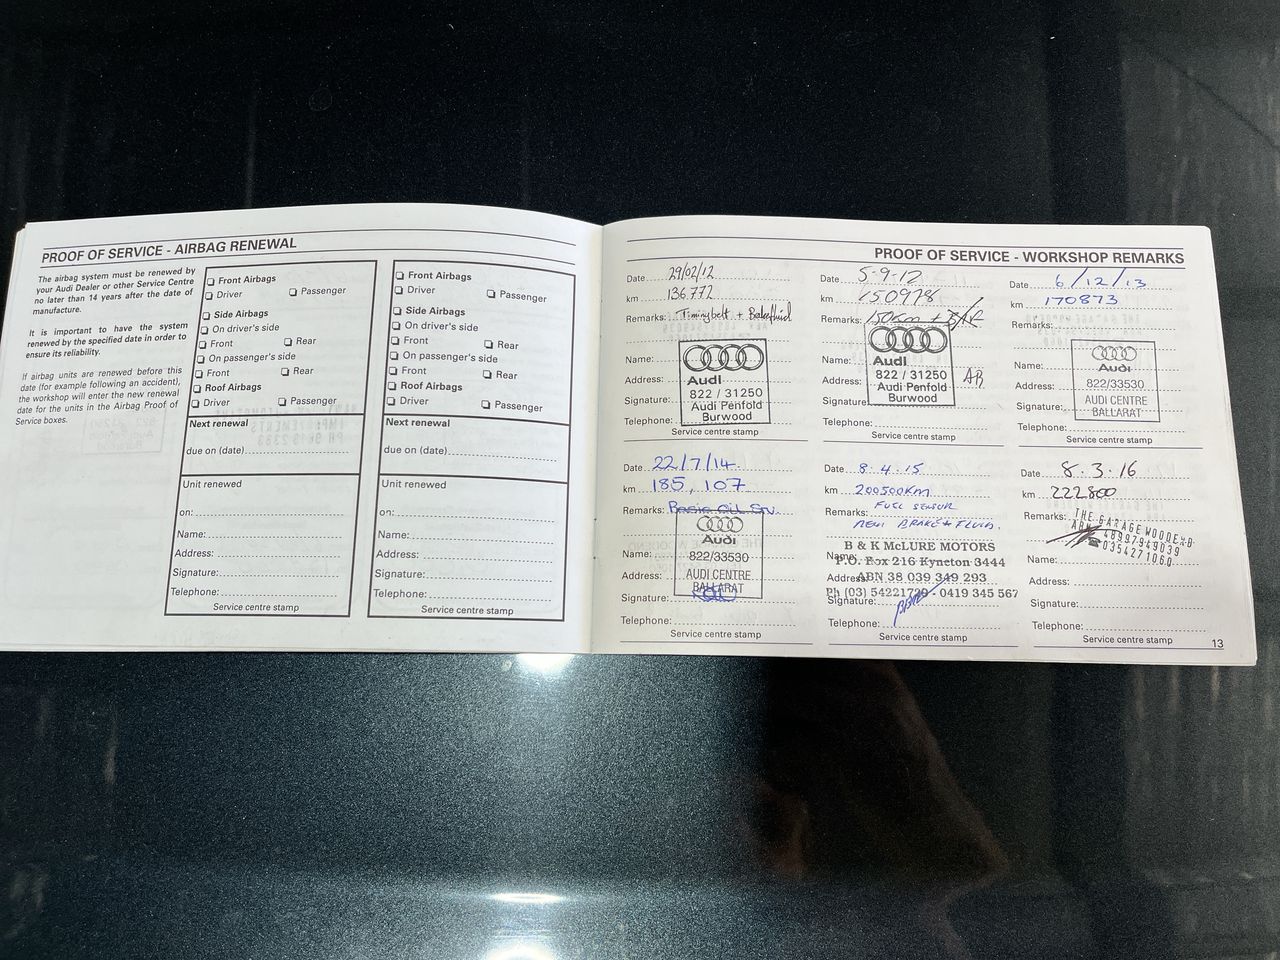 PROOF OF SERVICE - AIRBAG RENEWAL
The airbag system must be renewed by
your Audi Dealer or other Service Centre
no later than 14 years after the date of
manufacture.
It is important to have the system
renewed by the specified date in order to
ensure its reliability.
If airbag units are renewed before this
date (for example following an accident),
the workshop will enter the new renewal
date for the units in the Airbag Proof of
Service boxes.
Front Airbags
Driver Passenger
Side Airbags
On driver's side
Front Rear
On passenger's side
Front Rear
Roof Airbags
Driver Passenger
Next renewal
due on (date)
Unit renewed
on:
Name:
Address:
Signature:
Telephone:
Service centre stamp
Front Airbags
Driver Passenger
Side Airbags
On driver's side
Front Rear
On passenger's side
Front Rear
Roof Airbags
Driver Passenger
Next renewal
due on (date)
Unit renewed
on:
Name:
Address:
Signature:
Telephone:
Service centre stamp
PROOF OF SERVICE - WORKSHOP REMARKS
Date 29/02/12
km 136772
Remarks: Timingbelt + Brakefluid
Name:
Address:
Signature:
Telephone:
Audi
822 / 31250
Audi Penfold
Burwood
Service centre stamp
Date 5-9-12
km 150978
Remarks: 150km +
Name:
Address:
Signature:
Telephone:
Audi
822 / 31250
Audi Penfold
Burwood
Service centre stamp
Date 6/12/13
km 170873
Remarks:
Name:
Address:
Signature:
Telephone:
Audi
822/33530
AUDI CENTRE
BALLARAT
Service centre stamp
Date 22/7/14
km 185,107
Remarks: Basic Oil Srv.
Name:
Address:
Signature:
Telephone:
Audi
822/33530
AUDI CENTRE
BALLARAT
Service centre stamp
Date 8.4.15
km 200500KM
FUEL SENSOR
Remarks: NEW BRAKE FLUID.
B & K McLURE MOTORS
P.O. Box 216 Kyneton 3444
ABN 38 039 349 293
Ph (03) 54221729 - 0419 345 567
Name:
Address:
Signature:
Telephone:
Service centre stamp
Date 8.3.16
km 222800
Remarks: THE GARAGE WOODEND
ABN 48997949039
☎0354271060
Name:
Address:
Signature:
Telephone:
Service centre stamp
13